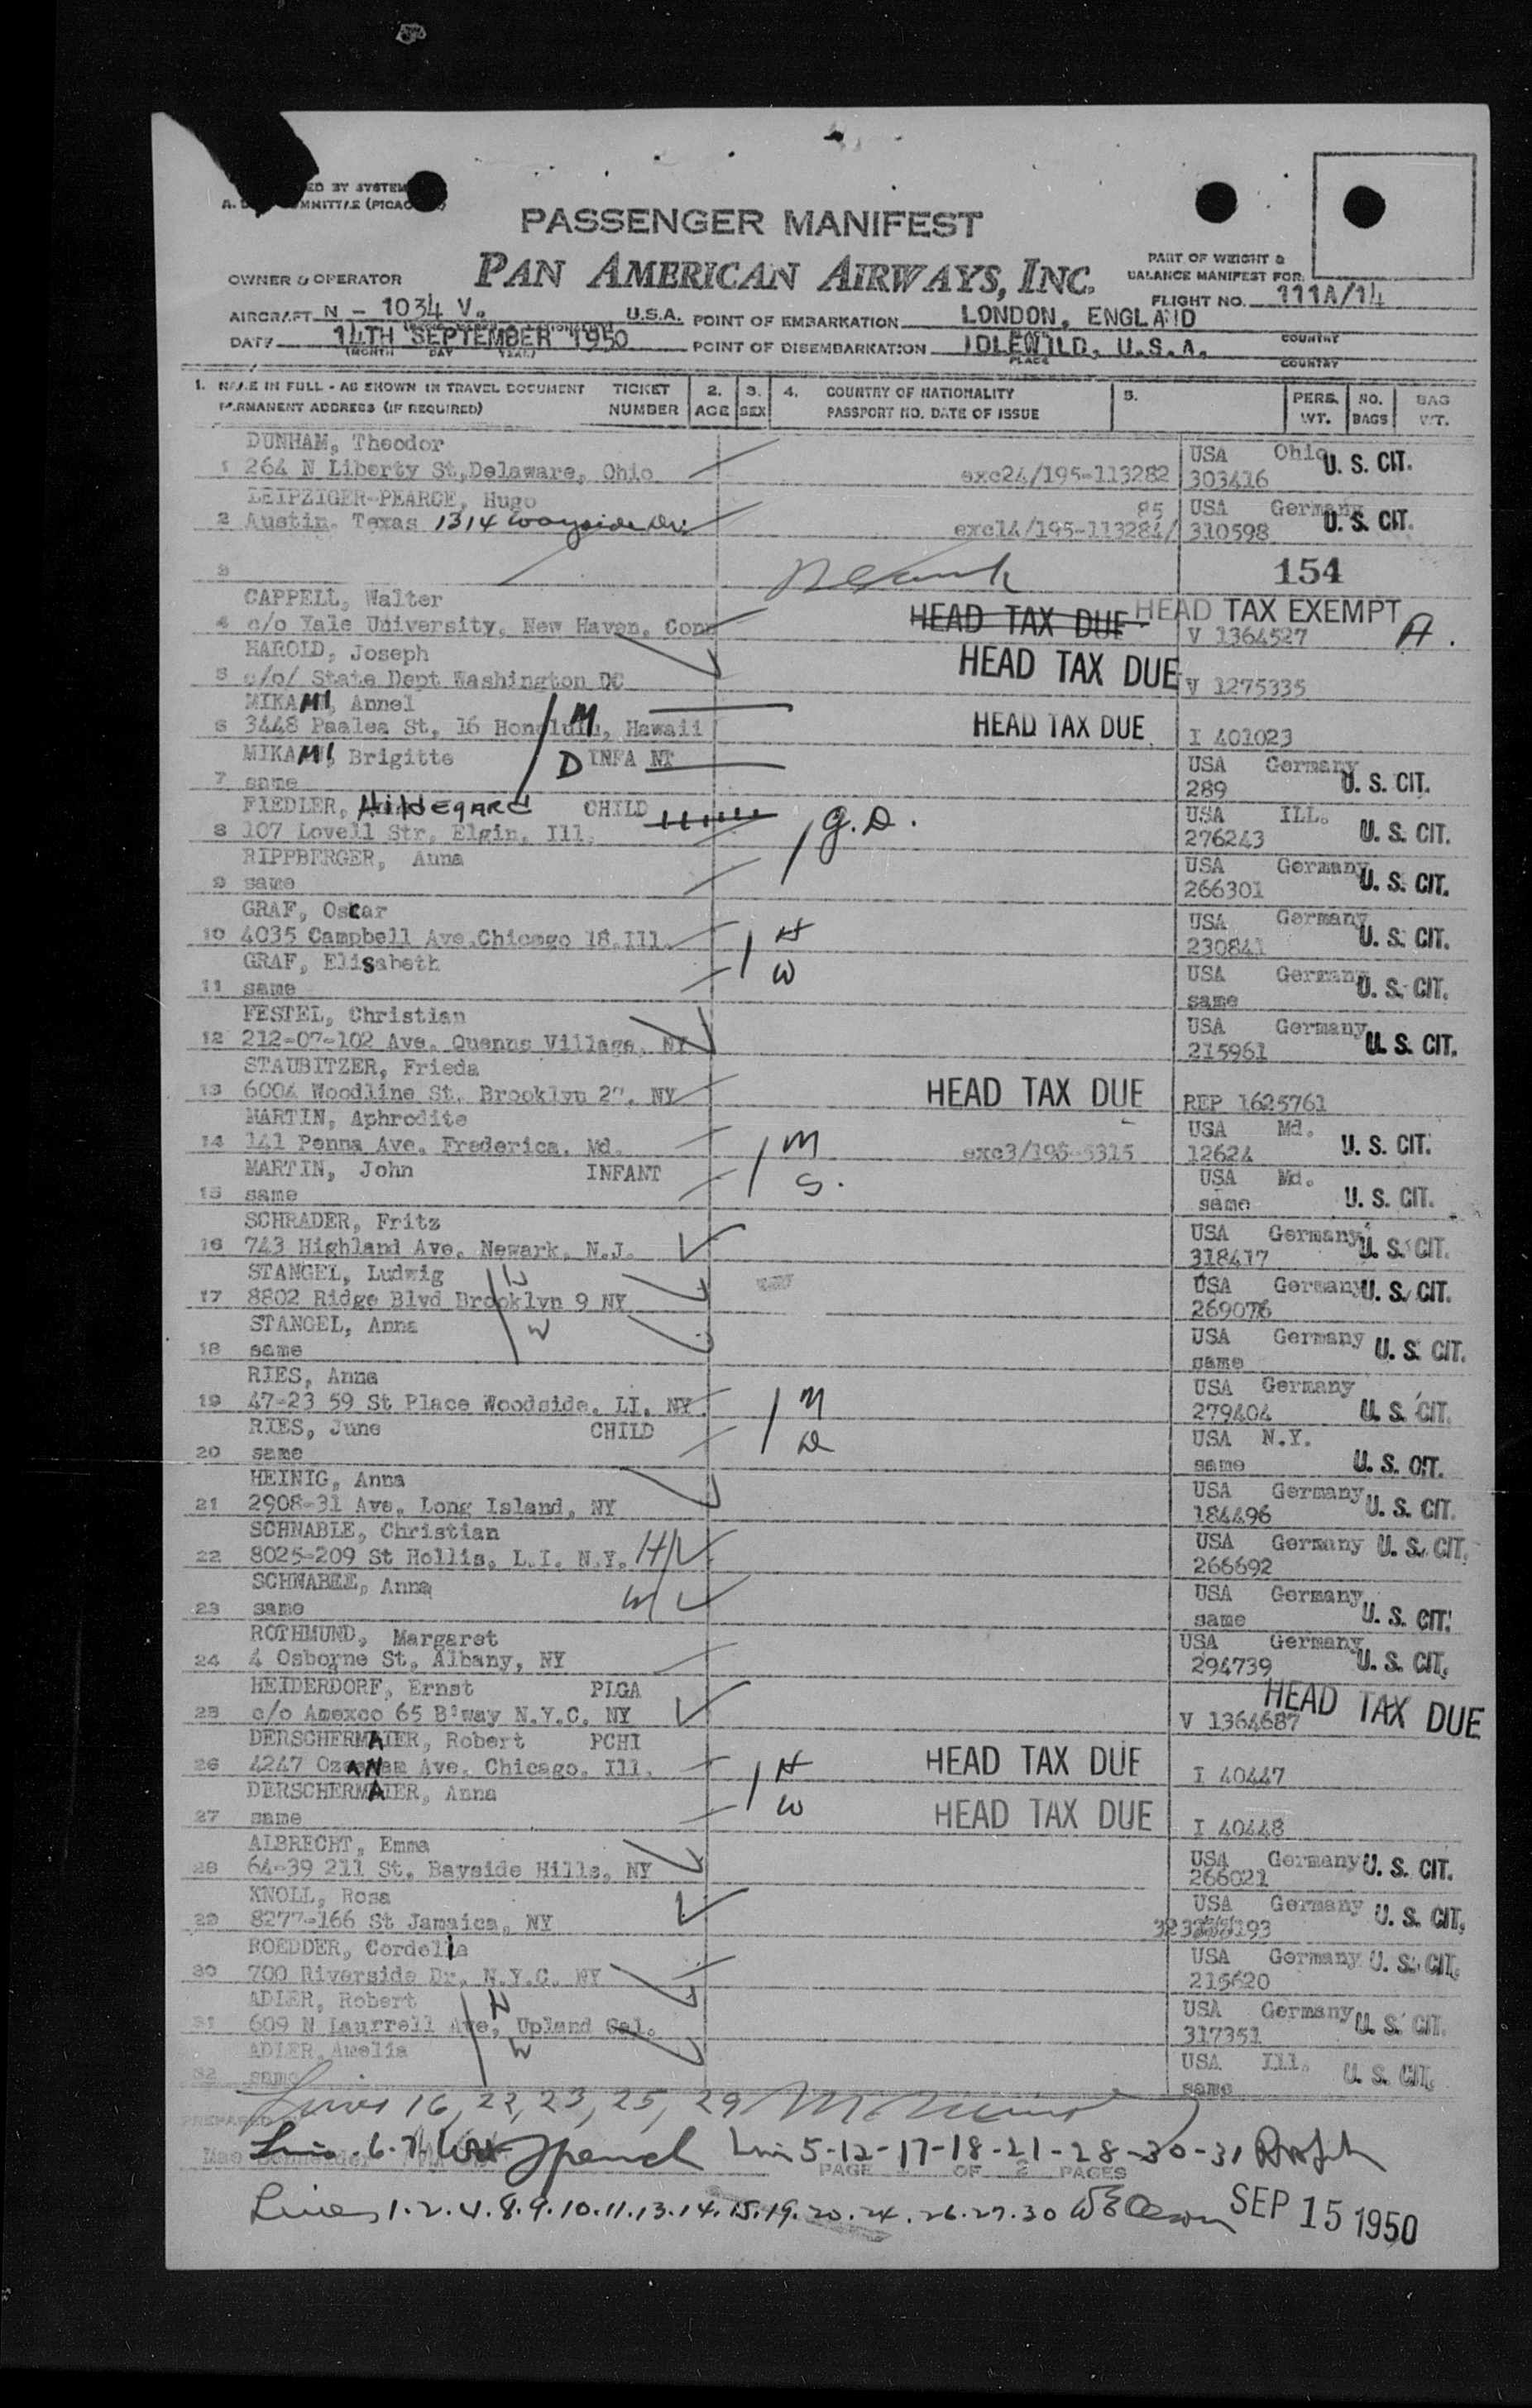 PASSENGER MANIFEST
OWNER & OPERATOR PAN AMERICAN AIRWAYS, INC. PART OF WEIGHT & BALANCE MANIFEST FOR:
FLIGHT NO. 111A/14
AIRCRAFT N - 1034 V. U.S.A. POINT OF EMBARKATION LONDON, ENGLAND
DATE 14TH SEPTEMBER 1950 POINT OF DISEMBARKATION IDLEWILD, U.S.A.
(MONTH DAY YEAR) PLACE COUNTRY
COUNTRY
1. NAME IN FULL - AS SHOWN IN TRAVEL DOCUMENT TICKET 2. 3. 4. COUNTRY OF NATIONALITY 5. PERS. NO. BAG
PERMANENT ADDRESS (IF REQUIRED) NUMBER AGE SEX PASSPORT NO. DATE OF ISSUE WT. BAGS WT.
DUNHAM, Theodor USA Ohio U. S. CIT.
1 264 N Liberty St,Delaware, Ohio exc24/195-113282 303416
LEIPZIGER-PEARCE, Hugo 85 USA Germany U. S. CIT.
2 Austin, Texas 1314 Wayside Dr. exc14/195-113284/ 310598
3 154
CAPPELL, Walter HEAD TAX DUE HEAD TAX EXEMPT
4 c/o Yale University, New Haven, Conn V 1364527 A.
HAROLD, Joseph HEAD TAX DUE
5 c/o/ State Dept Washington DC V 1275335
MIKAMI, Annel
6 3448 Paalea St, 16 Honolulu, Hawaii M HEAD TAX DUE I 401023
MIKAMI, Brigitte D INFANT USA Germany U. S. CIT.
7 same 289
FIEDLER, Hildegard CHILD USA ILL.
8 107 Lovell Str, Elgin, Ill. G.D. 276243 U. S. CIT.
RIPPBERGER, Anna USA Germany U. S. CIT.
9 same 266301
GRAF, Oskar USA Germany U. S. CIT.
10 4035 Campbell Ave,Chicago 18,Ill. H 230841
GRAF, Elisabeth W USA Germany U. S. CIT.
11 same same
FESTEL, Christian USA Germany U. S. CIT.
12 212-07-102 Ave. Quenns Village, NY 215961
STAUBITZER, Frieda
13 6004 Woodline St. Brooklyn 27, NY HEAD TAX DUE REP 1625761
MARTIN, Aphrodite USA Md. U. S. CIT.
14 141 Penna Ave, Frederica, Md. M exc3/195-5315 12624
MARTIN, John INFANT S. USA Md.
15 same same U. S. CIT.
SCHRADER, Fritz USA Germany U. S. CIT.
16 743 Highland Ave. Newark, N.J. 318417
STANGEL, Ludwig H USA Germany U. S. CIT.
17 8802 Ridge Blvd Brooklyn 9 NY 269076
STANGEL, Anna W USA Germany U. S. CIT.
18 same same
RIES, Anna USA Germany
19 47-23 59 St Place Woodside, LI. NY. M 279404 U. S. CIT.
RIES, June CHILD D USA N.Y.
20 same same U. S. CIT.
HEINIG, Anna USA Germany U. S. CIT.
21 2908-31 Ave. Long Island, NY 184496
SCHNABLE, Christian USA Germany U. S. CIT.
22 8025-209 St Hollis, L.I. N.Y. H 266692
SCHNABLE, Anna W USA Germany U. S. CIT.
23 same same
ROTHMUND, Margaret USA Germany
24 4 Osborne St, Albany, NY 294739 U. S. CIT.
HEIDERDORF, Ernst PLGA HEAD TAX DUE
25 c/o Amexco 65 B'way N.Y.C. NY V 1364687
DERSCHERMAIER, Robert PCHI
26 4247 Ozanam Ave. Chicago, Ill. H HEAD TAX DUE I 40447
DERSCHERMAIER, Anna W HEAD TAX DUE
27 same I 40448
ALBRECHT, Emma USA Germany U. S. CIT.
28 64-39 211 St. Bayside Hills, NY 266021
KNOLL, Rosa USA Germany U. S. CIT.
29 8277-166 St Jamaica, NY
ROEDDER, Cordelia USA Germany U. S. CIT.
30 700 Riverside Dr. N.Y.C. NY 215620
ADLER, Robert H USA Germany U. S. CIT.
31 609 N Laurrell Ave, Upland Cal. 317351
ADLER, Amelia W USA Ill. U. S. CIT.
32 same same
Lines 16, 22, 23, 25, 29
PREPARED
Lines 5-12-17-18-21-28-30-31
PAGE 1 OF 2 PAGES
Lines 1.2.4.8.9.10.11.13.14.15.19.20.24.26.27.30 SEP 15 1950